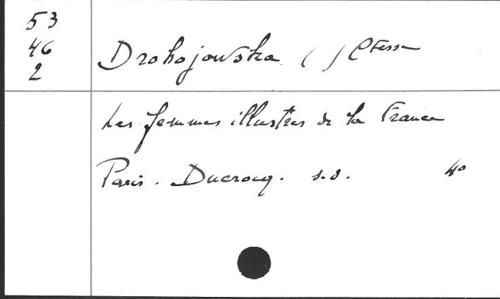 53
46
2
Drohojowska ( ) Ctesse
Les femmes illustres de la France
Paris. Ducrocq. s.d. 4o